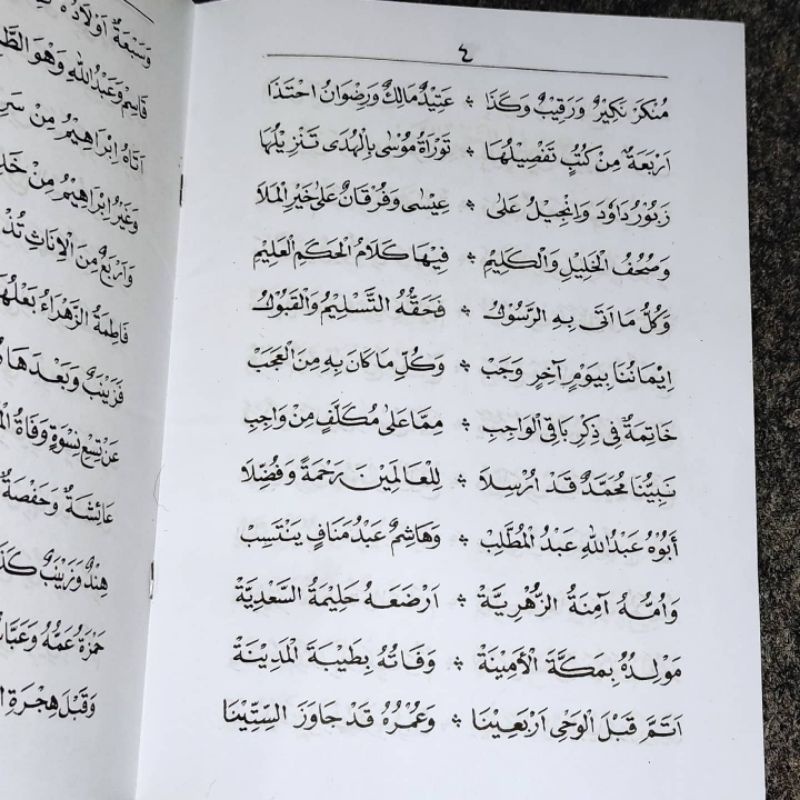 ٤
مُنْكَرْ نَكِيْرٌ وَرَقِيْبٌ وَكَذَا ❖ عَتِيْدٌ مَالِكٌ وَرِضْوَانُ احْتَذَا
اَرْبَعَةٌ مِنْ كُتُبٍ تَفْصِيْلُهَا ❖ تَوْرَاةُ مُوْسَى بِالْهُدَى تَنْزِيْلُهَا
زَبُوْرُ دَاوُدَ وَاِنْجِيْلُ عَلَى ❖ عِيْسَى وَفُرْقَانٌ عَلَى خَيْرِ الْمَلَا
وَصُحُفُ الْخَلِيْلِ وَالْكَلِيْمِ ❖ فِيْهَا كَلَامُ الْحَكَمِ الْعَلِيْمِ
وَكُلُّ مَا اَتَى بِهِ الرَّسُوْلُ ❖ فَحَقُّهُ التَّسْلِيْمُ وَالْقَبُوْلُ
اِيْمَانُنَا بِيَوْمِ آخِرٍ وَجَبْ ❖ وَكُلِّ مَا كَانَ بِهِ مِنَ الْعَجَبْ
خَاتِمَةٌ فِى ذِكْرِ بَاقِى الْوَاجِبِ ❖ مِمَّا عَلَى مُكَلَّفٍ مِنْ وَاجِبِ
نَبِيُّنَا مُحَمَّدٌ قَدْ اُرْسِلَا ❖ لِلْعَالَمِيْنَ رَحْمَةً وَفُضِّلَا
أَبُوْهُ عَبْدُ اللهِ عَبْدُ الْمُطَّلِبْ ❖ وَهَاشِمٌ عَبْدُ مَنَافٍ يَنْتَسِبْ
وَاُمُّهُ آمِنَةُ الزُّهْرِيَّةْ ❖ اَرْضَعَهُ حَلِيْمَةُ السَّعْدِيَّةْ
مَوْلِدُهُ بِمَكَّةَ الْأَمِيْنَةْ ❖ وَفَاتُهُ بِطَيْبَةَ الْمَدِيْنَةْ
اَتَمَّ قَبْلَ الْوَحْىِ اَرْبَعِيْنَا ❖ وَعُمْرُهُ قَدْ جَاوَزَ السِّتِّيْنَا
وَسَبْعَةٌ اَوْلَادُهُ
قَاسِمْ وَعَبْدُ اللهِ وَهْوَ
اَتَاهُ اِبْرَاهِيْمُ مِنْ
وَغَيْرُ اِبْرَاهِيْمَ مِنْ
وَاَرْبَعٌ مِنَ الْاِنَاثِ
فَاطِمَةُ الزَّهْرَاءُ بَعْلُهَا
فَزَيْنَبٌ وَبَعْدَهَا
عَنْ تِسْعِ نِسْوَةٍ وَفَاةُ
عَائِشَةٌ وَحَفْصَةٌ
هِنْدٌ وَزَيْنَبٌ
حَمْزَةُ عَمُّهُ
وَقَبْلَ هِجْرَةِ